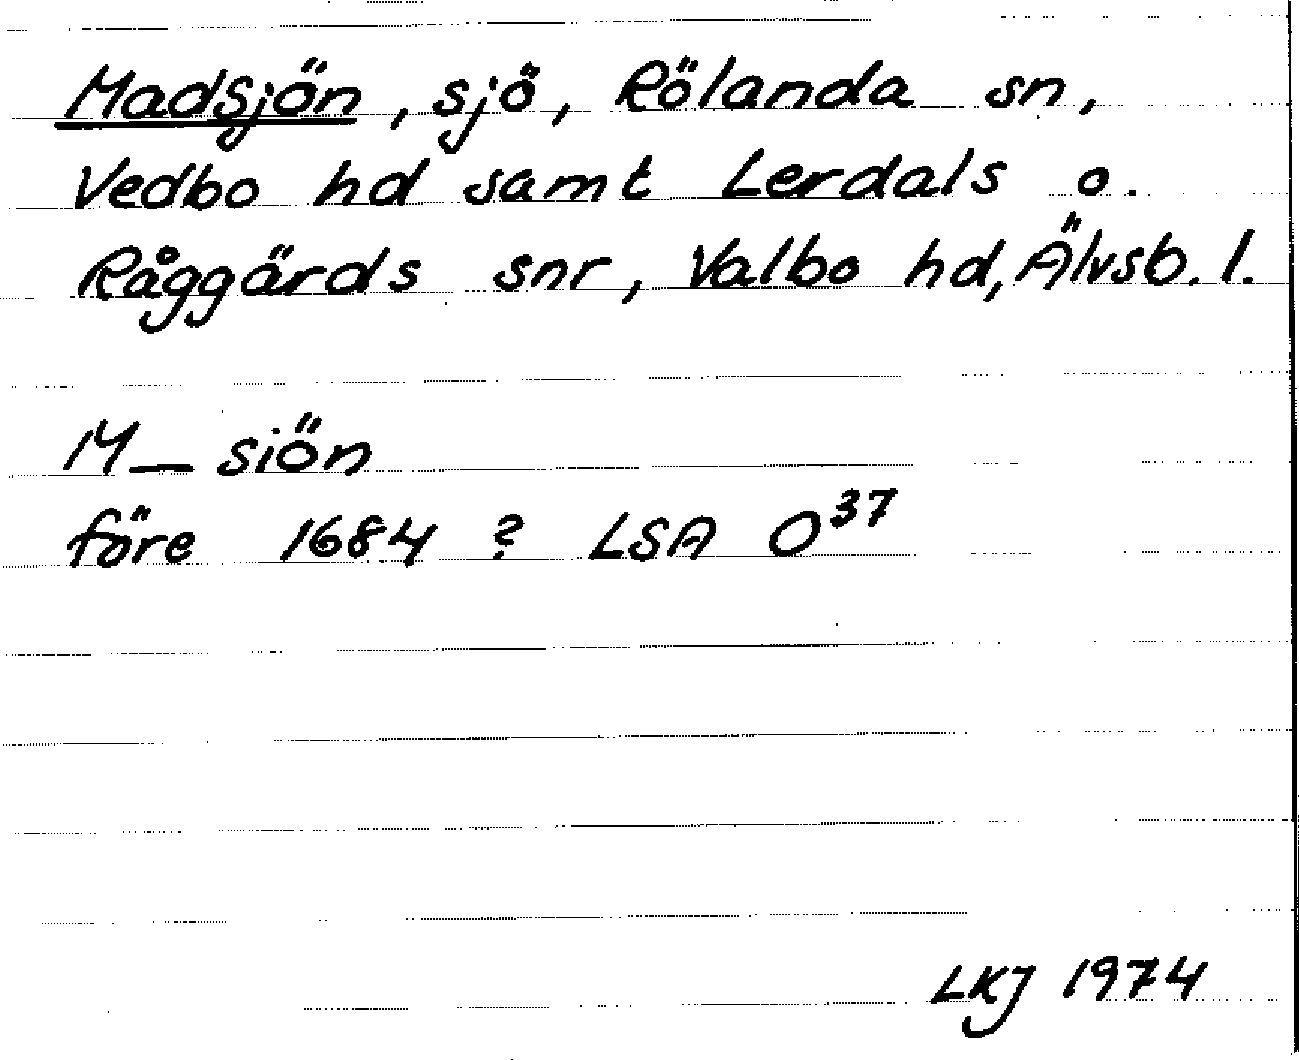 Madsjön, sjö, Rölanda sn,
Vedbo hd samt Lerdals o.
Råggärds snr, Valbo hd, Älvsb. l.
M— siön
före 1684 ? LSA O³⁷
LKJ 1974